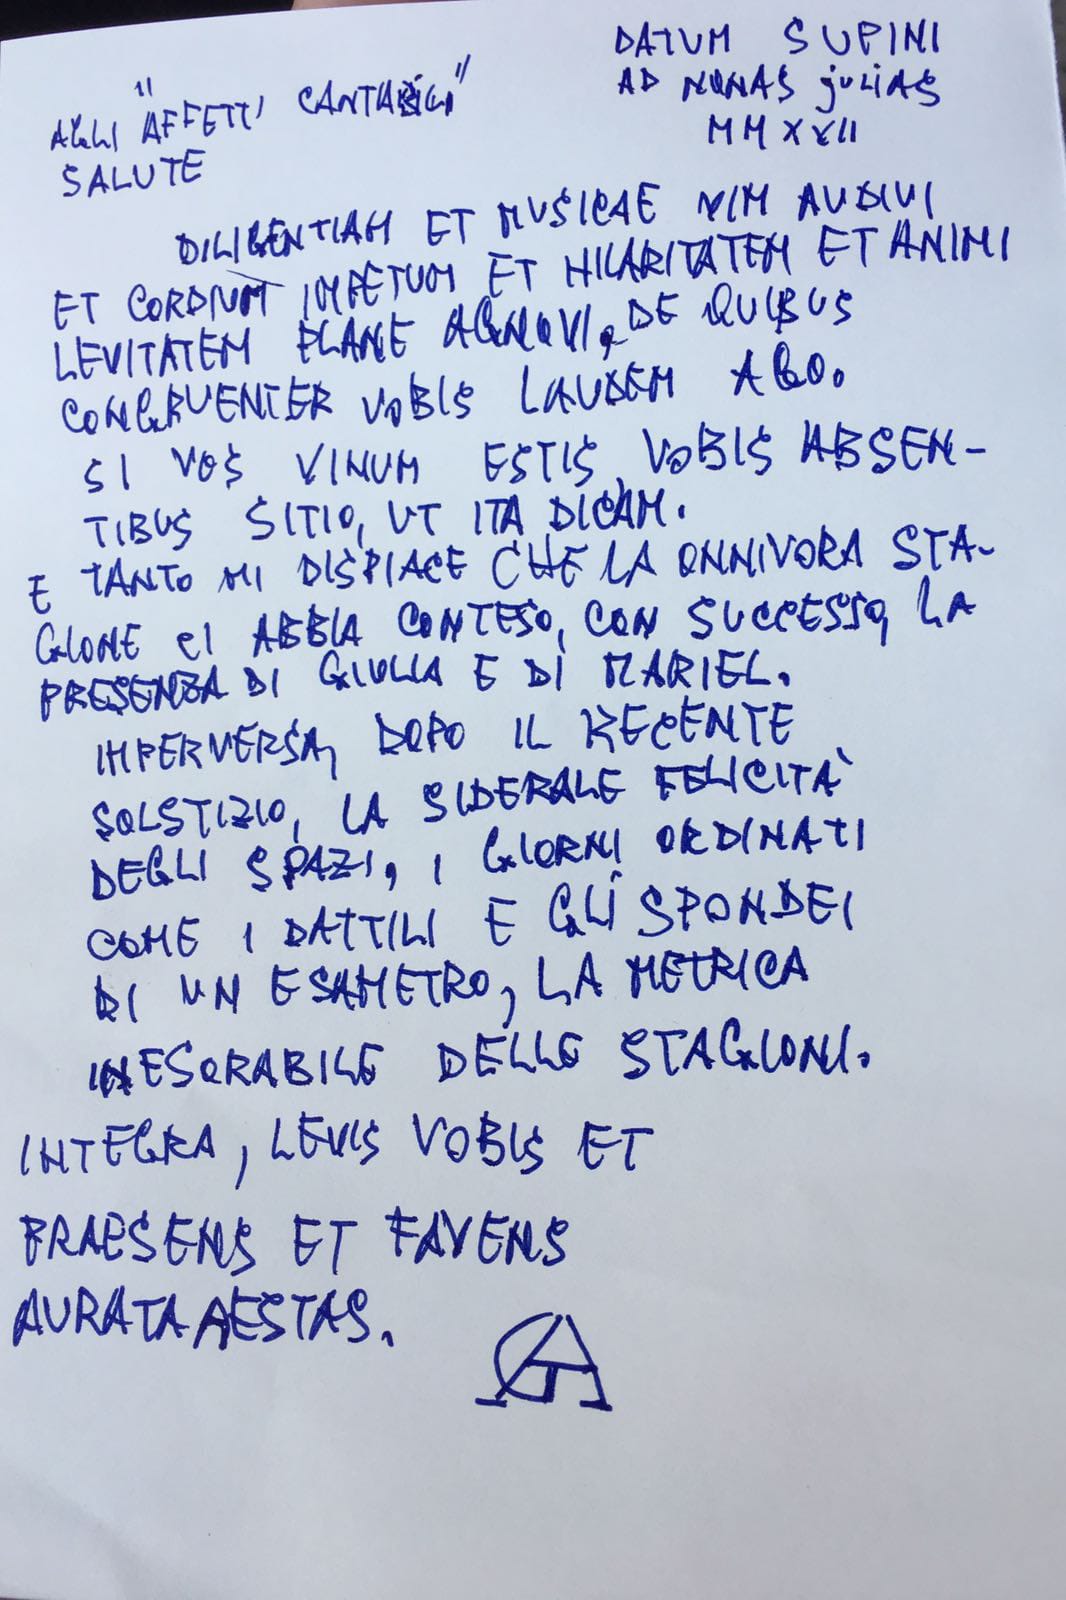 DATUM SUPINI
AD NONAS juLIAS
MMXVII
AGLI "AFFETTI CANTABILI"
SALUTE
DILIGENTIAM ET MUSICAE VIM AUDIVI
ET CORDIUM IMPETUM ET HILARITATEM ET ANIMI
LEVITATEM PLANE AGNOVI, DE QUIBUS
CONGRUENTER VOBIS LAUDEM AGO.
SI VOS VINUM ESTIS, VOBIS ABSEN-
TIBUS SITIO, UT ITA DICAM.
E TANTO MI DISPIACE CHE LA ONNIVORA STA-
GIONE CI ABBIA CONTESO, CON SUCCESSO, LA
PRESENZA DI GIULIA E DI MARIEL.
IMPERVERSA, DOPO IL RECENTE
SOLSTIZIO, LA SIDERALE FELICITÀ
DEGLI SPAZI, I GIORNI ORDINATI
COME I DATTILI E GLI SPONDEI
DI UN ESAMETRO, LA METRICA
INESORABILE DELLE STAGIONI.
INTEGRA, LEVIS VOBIS ET
PRAESENS ET FAVENS
AURATA AESTAS.